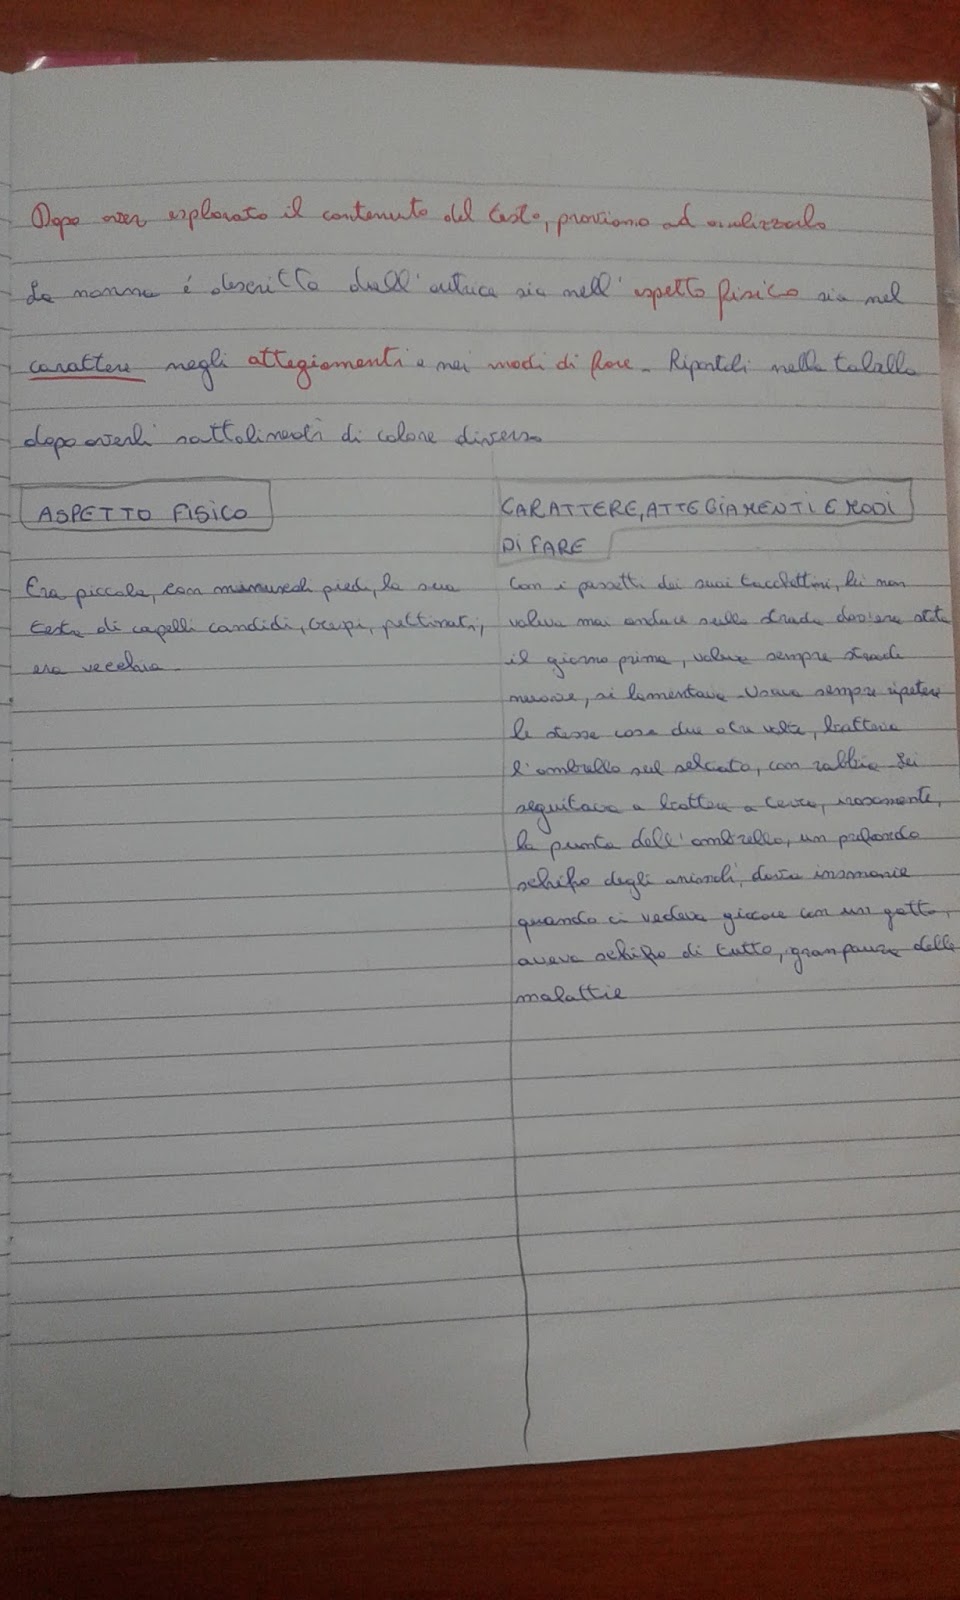 Dopo aver esplorato il contenuto del testo, proviamo ad analizzarlo
La nonna é descritta dall'autrice sia nell'aspetto fisico sia nel
carattere negli attegiamenti e nei modi di fare. Riportali nella tabella
dopo averli sottolineati di colore diverso
ASPETTO FISICO
Era piccola, con minuscoli piedi, la sua
testa di capelli candidi, crespi, pettinati,
era vecchia
CARATTERE, ATTEGIAMENTI E MODI
DI FARE
Con i passetti dei suoi tacchettini, lei non
voleva mai andare nella strada dov'era stata
il giorno prima, voleva sempre strade
nuove, si lamentava. Usava sempre ripetere
le stesse cose due o tre volte, batteva
l'ombrello sul selciato, con rabbia. Lei
seguitava a battere a terra, irosamente,
la punta dell'ombrello, un profondo
schifo degli animali, dava in smanie
quando ci vedeva giocare con un gatto,
aveva schifo di tutto, gran paura delle
malattie